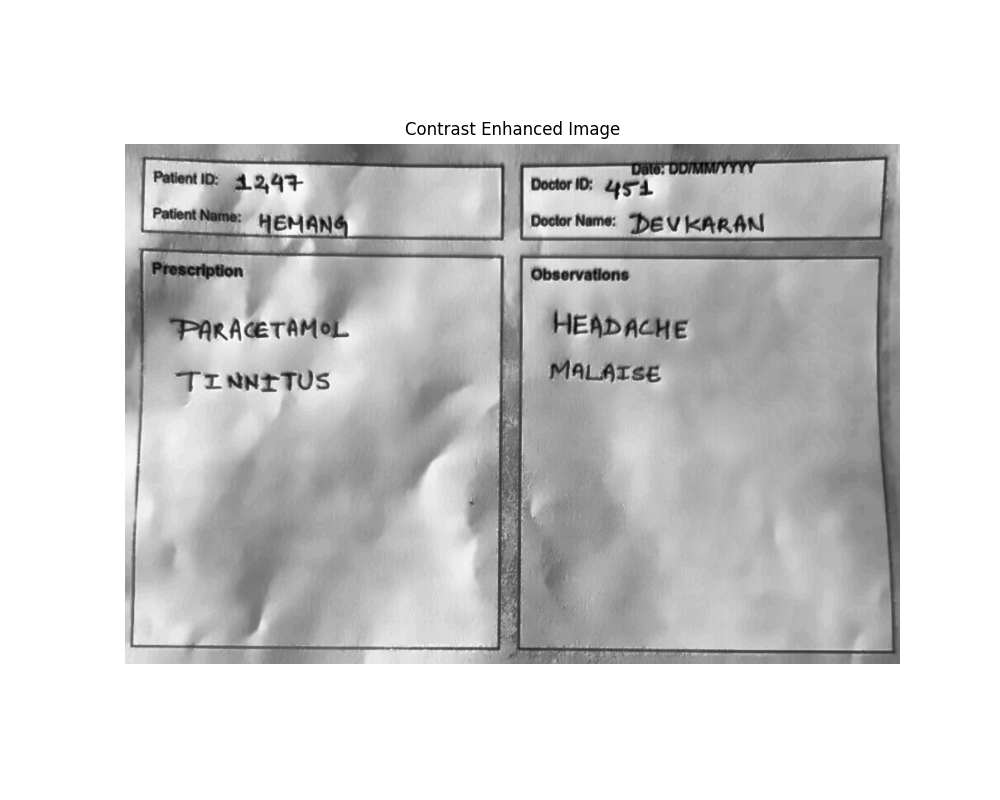 Contrast Enhanced Image
Patient ID: 1247
Patient Name: HEMANG
Date: DD/MM/YYYY
Doctor ID: 451
Doctor Name: DEVKARAN
Prescription
PARACETAMOL
TINNITUS
Observations
HEADACHE
MALAISE